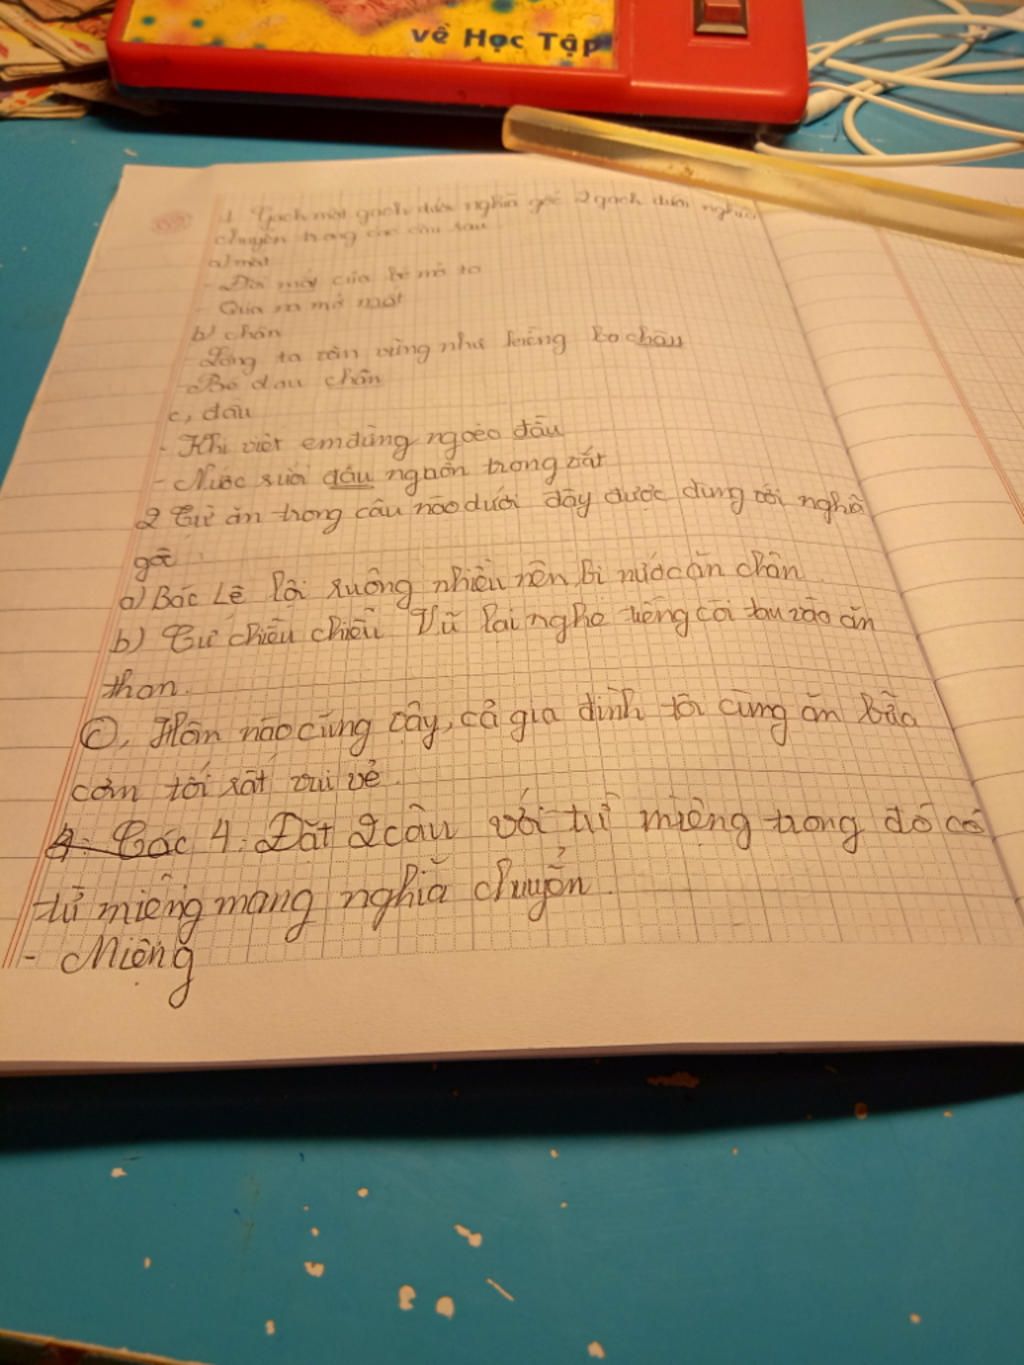 về Học Tập
1. Gạch một gạch dưới nghĩa gốc 2 gạch dưới nghĩa
chuyển trong các câu sau
a) mắt
- Đôi mắt của bé mở to
- Quả na mở mắt
b) chân
- Lòng ta vẫn vững như kiềng ba chân
- Bé đau chân
c, đầu
- Khi viết em đừng ngoẹo đầu
- Nước suối đầu nguồn trong vắt
2 Từ ăn trong câu nào dưới đây được dùng với nghĩa
gốc
a) Bác Lê lội ruộng nhiều nên bị nước ăn chân.
b) Cứ chiều chiều Vũ lại nghe tiếng còi tàu vào ăn
than.
c, Hôm nào cũng vậy, cả gia đình tôi cùng ăn bữa
cơm tối rất vui vẻ.
4: Đặt 2 câu với từ miệng trong đó có
từ miệng mang nghĩa chuyển.
- Miệng